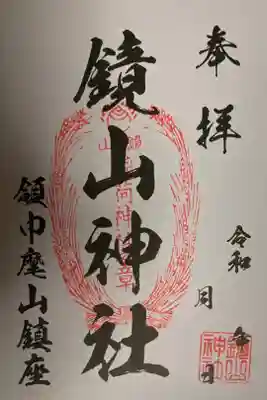 奉拝
鏡山神社
令和 年 月 日
領巾麾山鎮座